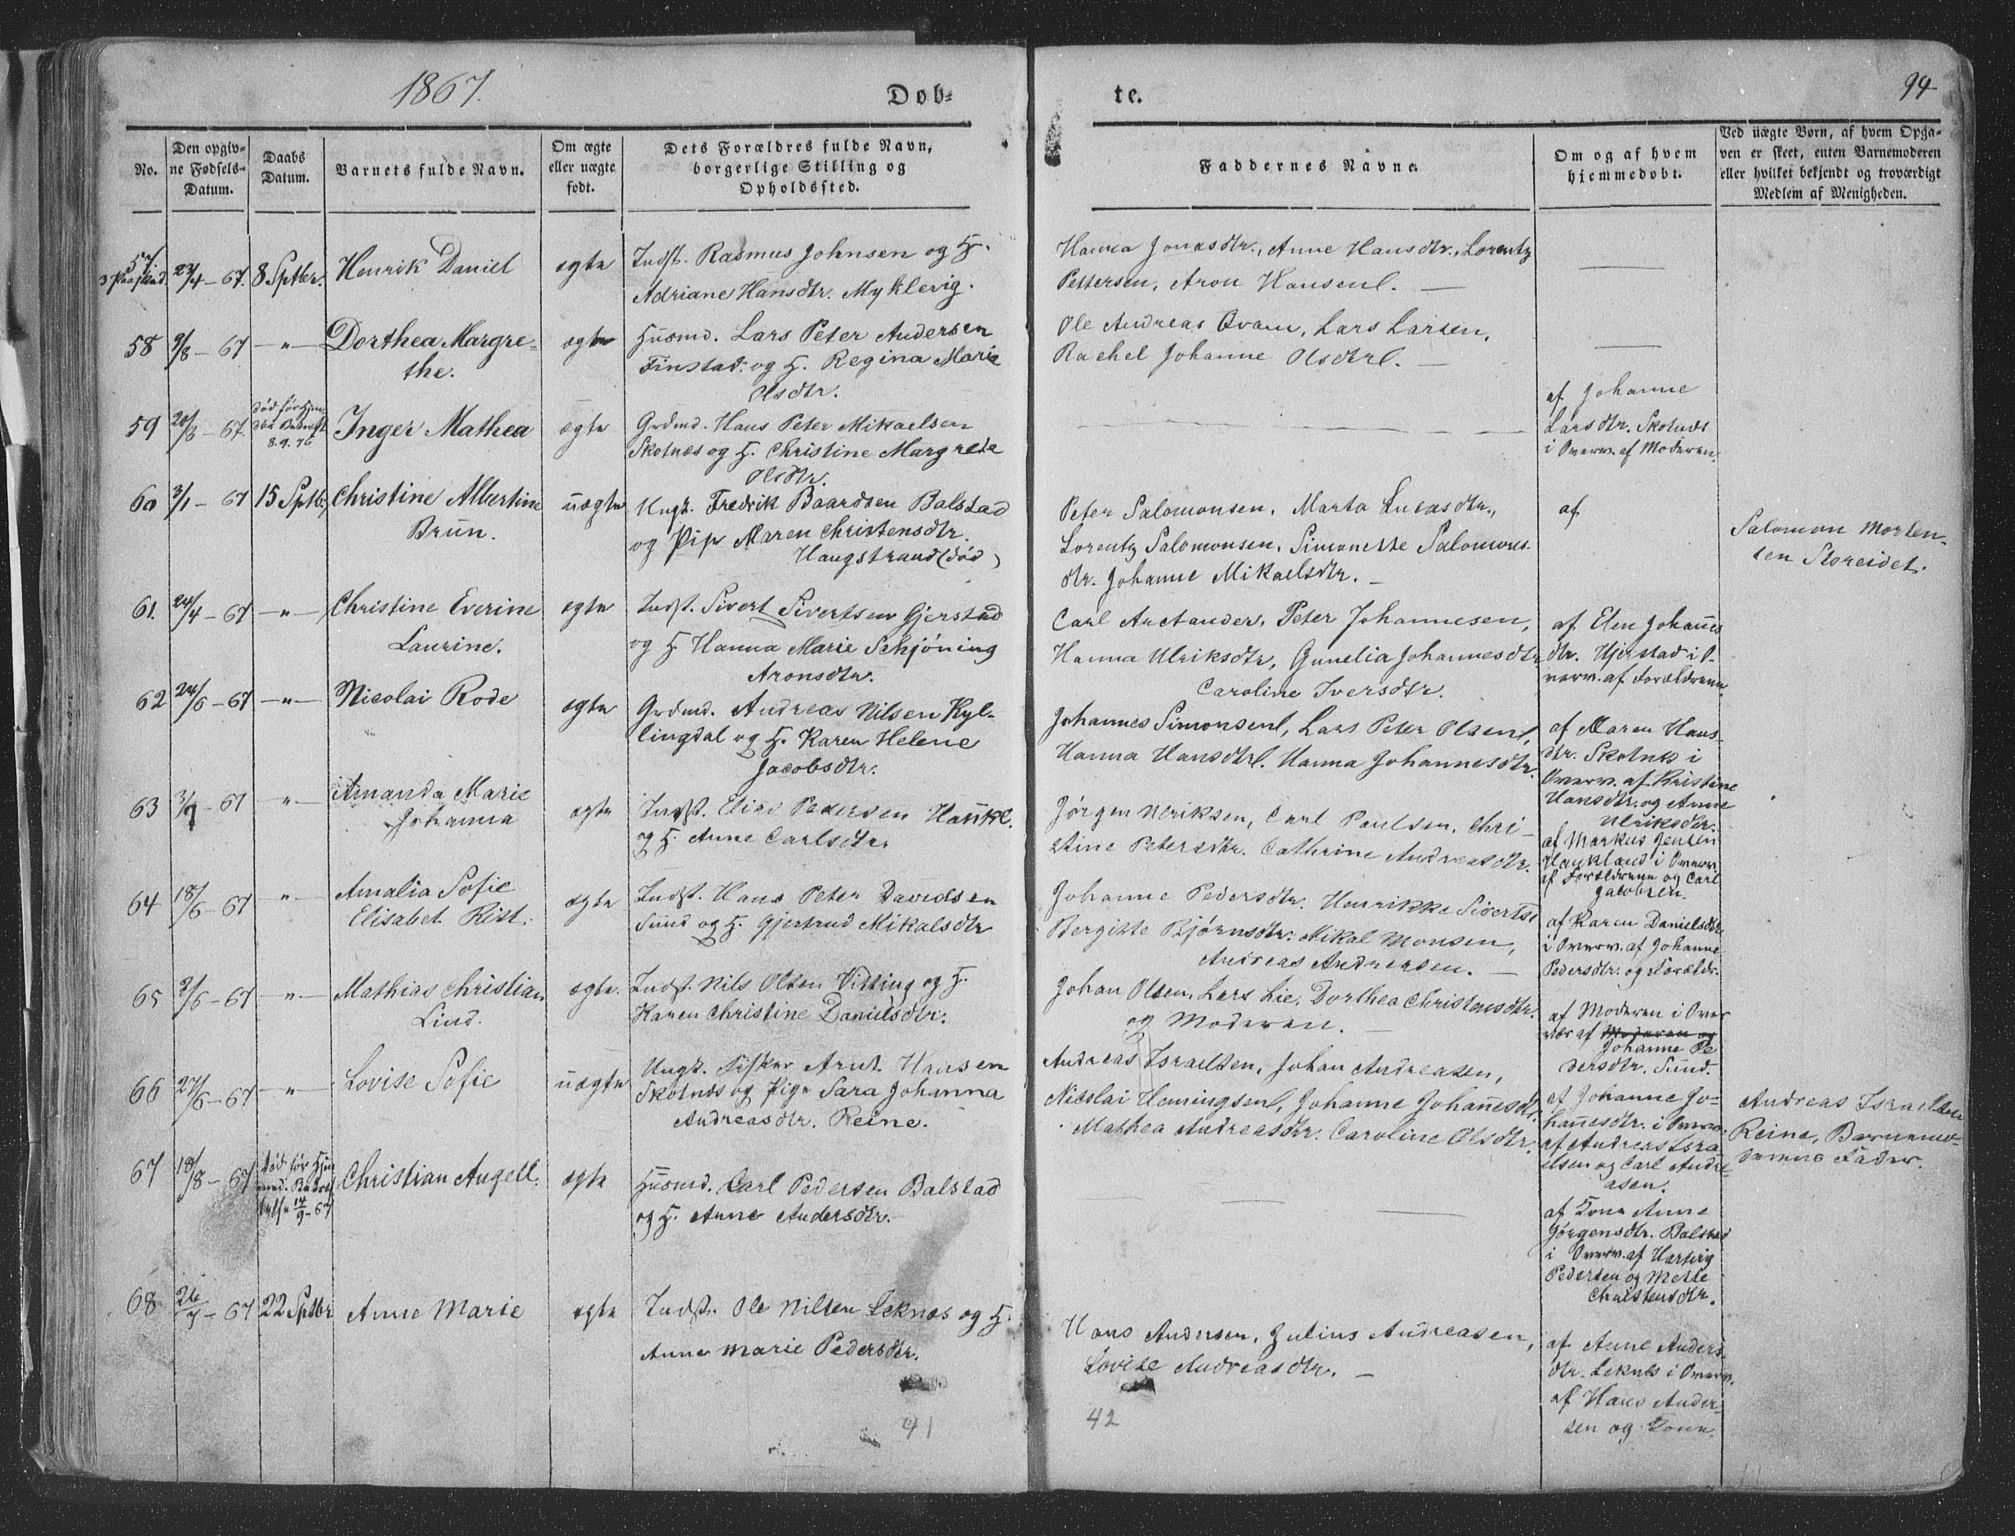 1867.
Dob-
te.
94
No.
Den opgiv-
ne Fødsels-
Datum.
Daabs
Datum.
Barnets fulde Navn.
Om ægte
eller uægte
født.
Dets Forældres fulde Navn,
borgerlige Stilling og
Opholdssted.
Faddernes Navne.
Om og af hvem
hjemmedøbt.
Ved uægte Børn, af hvem Opga-
ven er skeet, enten Barnemoderen
eller hvilket bekjendt og troværdigt
Medlem af Menigheden.
57
23/4 - 67.
8 Sptbr.
Henrik Daniel
ægte
Indst. Rasmus Johnsen og H.
Adriane Hansdtr. Myklevig.
Hanna Jonasdtr., Anne Hansdtr., Lorentz
Pettersen, Aron Hansenl. —
58
9/8 - 67
—"—
Dorthea Margre-
the.
ægte
Husmd. Lars Peter Andersen
Finstad. og H. Regina Marie
Olsdtr.
Ole Andreas Qvam, Lars Larsen,
Rachel Johanne Olsdtrl. —
59
20/3 - 67.
død før
8.9.
Inger Mathea
ægte
Grdmd. Hans Peter Mikaelsen
Skotnæs og H. Christine Margrete
Olsdtr.
af Johanne
Larsdtr. Skotnæs
i Overv. af Moderen.
60
3/1 - 67
15 Sptbr.
Christine Albertine
Brun.
uægte
Ungk. Fredrik Baardsen Balstad
og Pige Maren Christensdtr.
Haugstrand (død)
Peter Salomonsen, Marta Lucasdtr.,
Lorentz Salomonsen, Simonette Salomons-
dtr. Johanne Mikaelsdtr. —
af
Salomon Morten-
sen Storeidet.
61.
24/4 - 67
—"—
Christine Everine
Laurine.
ægte
Indst. Sivert Sivertsen Gjerstad
og H. Hanna Marie Schjøning
Aronsdtr.
Carl Archander, Peter Johannesen,
Hanna Ulriksdtr, Gunelia Johannesdtr
Caroline Iversdtr.
af Elen Johannes
dtr. Hjerstad i O-
verv. af Forældrene
62
24/6 - 67
—"—
Nicolai Rode
ægte
Grdmd. Andreas Nilsen Kyl-
lingdal og H. Karen Helene
Jacobsdtr.
Johannes Simonsenl, Lars Peter Olsenl,
Hanna Hansdtrl. Hanna Johannesdtr.
af Maren Hans-
dtr. Skotnes i
Overv. af Kristine
Hansdtr. og Anne
Ulriksdtr.
63
- 67
—"—
Amanda Marie
Johanna
ægte
Indst. Elias Pedersen Haukl.
og H. Anne Carlsdtr.
Jørgen Ulriksen, Carl Paulsen, Chri-
stine Petersdtr. Cathrine Andreasdtr.
af Markus Jensen
Haukland i Overv.
af Forældrene og Carl
Jacobsen.
64
18/6 - 67
—"—
Amalia Sofie
Elisabet Rist.
ægte
Indst. Hans Peter Davidsen
Sund og H. Gjertrud Mikalsdtr
Johanne Pedersdtr. Henrikke Sivertsd
Bergitte Bjørnsdtr. Mikal Monsen,
Andreas Andreasen. —
af Karen Danielsdtr
i Overv. af Johanne
Pedersdtr. og Forældr.
65
2/6 - 67
—"—
Mathias Christian
Lind.
ægte.
Indst. Nils Olsen Vitting og H.
Karen Christine Danielsdtr.
Johan Olsen, Lars Lie, Dorthea Christensdtr.
og Moderen. —
af Moderen i Over
vær af Moderen og
Johanne Pe
dersdtr. Sund.
66
27/6 - 67
"
Lovise Sofie
uægte
Ungk. Fisker Arnt Hansen
Skotnæs og Pige Sara Johanna
Andreasdtr. Reine.
Andreas Israelsen, Johan Andreasen,
Nicolai Hemingsenl, Johanne Johannesdtr,
Mathea Andreasdtr. Caroline Olsdtr.
af Johanne Jo-
hannesdtr. i Overv.
af Andreas Isra-
elsen og Carl Andre-
asen.
Andreas Israelsen
Reine, Barnemo-
derens Fader.
67
18/8 - 67
død før Hjem
14/9 - 67
Christian Angell.
ægte
Husmd. Carl Pedersen Balstad
og H. Anne Andersdtr.
af Kone Anne
Jørgensdtr. Balstad
i Overv. af Hartvig
Pedersen og Mette
Christensdtr.
68
- 67
22 Sptbr
Anne Marie
ægte
Indst. Ole Nilsen Leknæs og H.
Anne Marie Pedersdtr.
Hans Andersen, Julius Andreasen,
Lovise Andreasdtr. —
af Anne Anders
dtr. Leknes i Overv.
af Hans Ander-
sen og Kone.
41
42